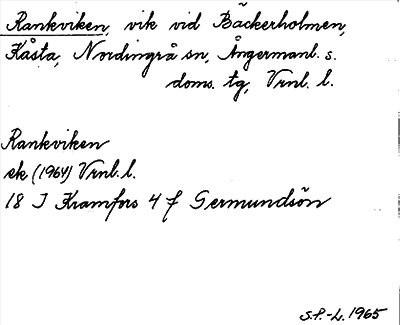 Rankviken, vik vid Bäckerholmen,
Kåsta, Nordingrå sn, Ångermanl. s.
doms. tg, Vrnl. l.
Rankviken
ek (1964) Vrnl. l.
18 J Kramfors 4 f Germundsön
S.P.-L. 1965